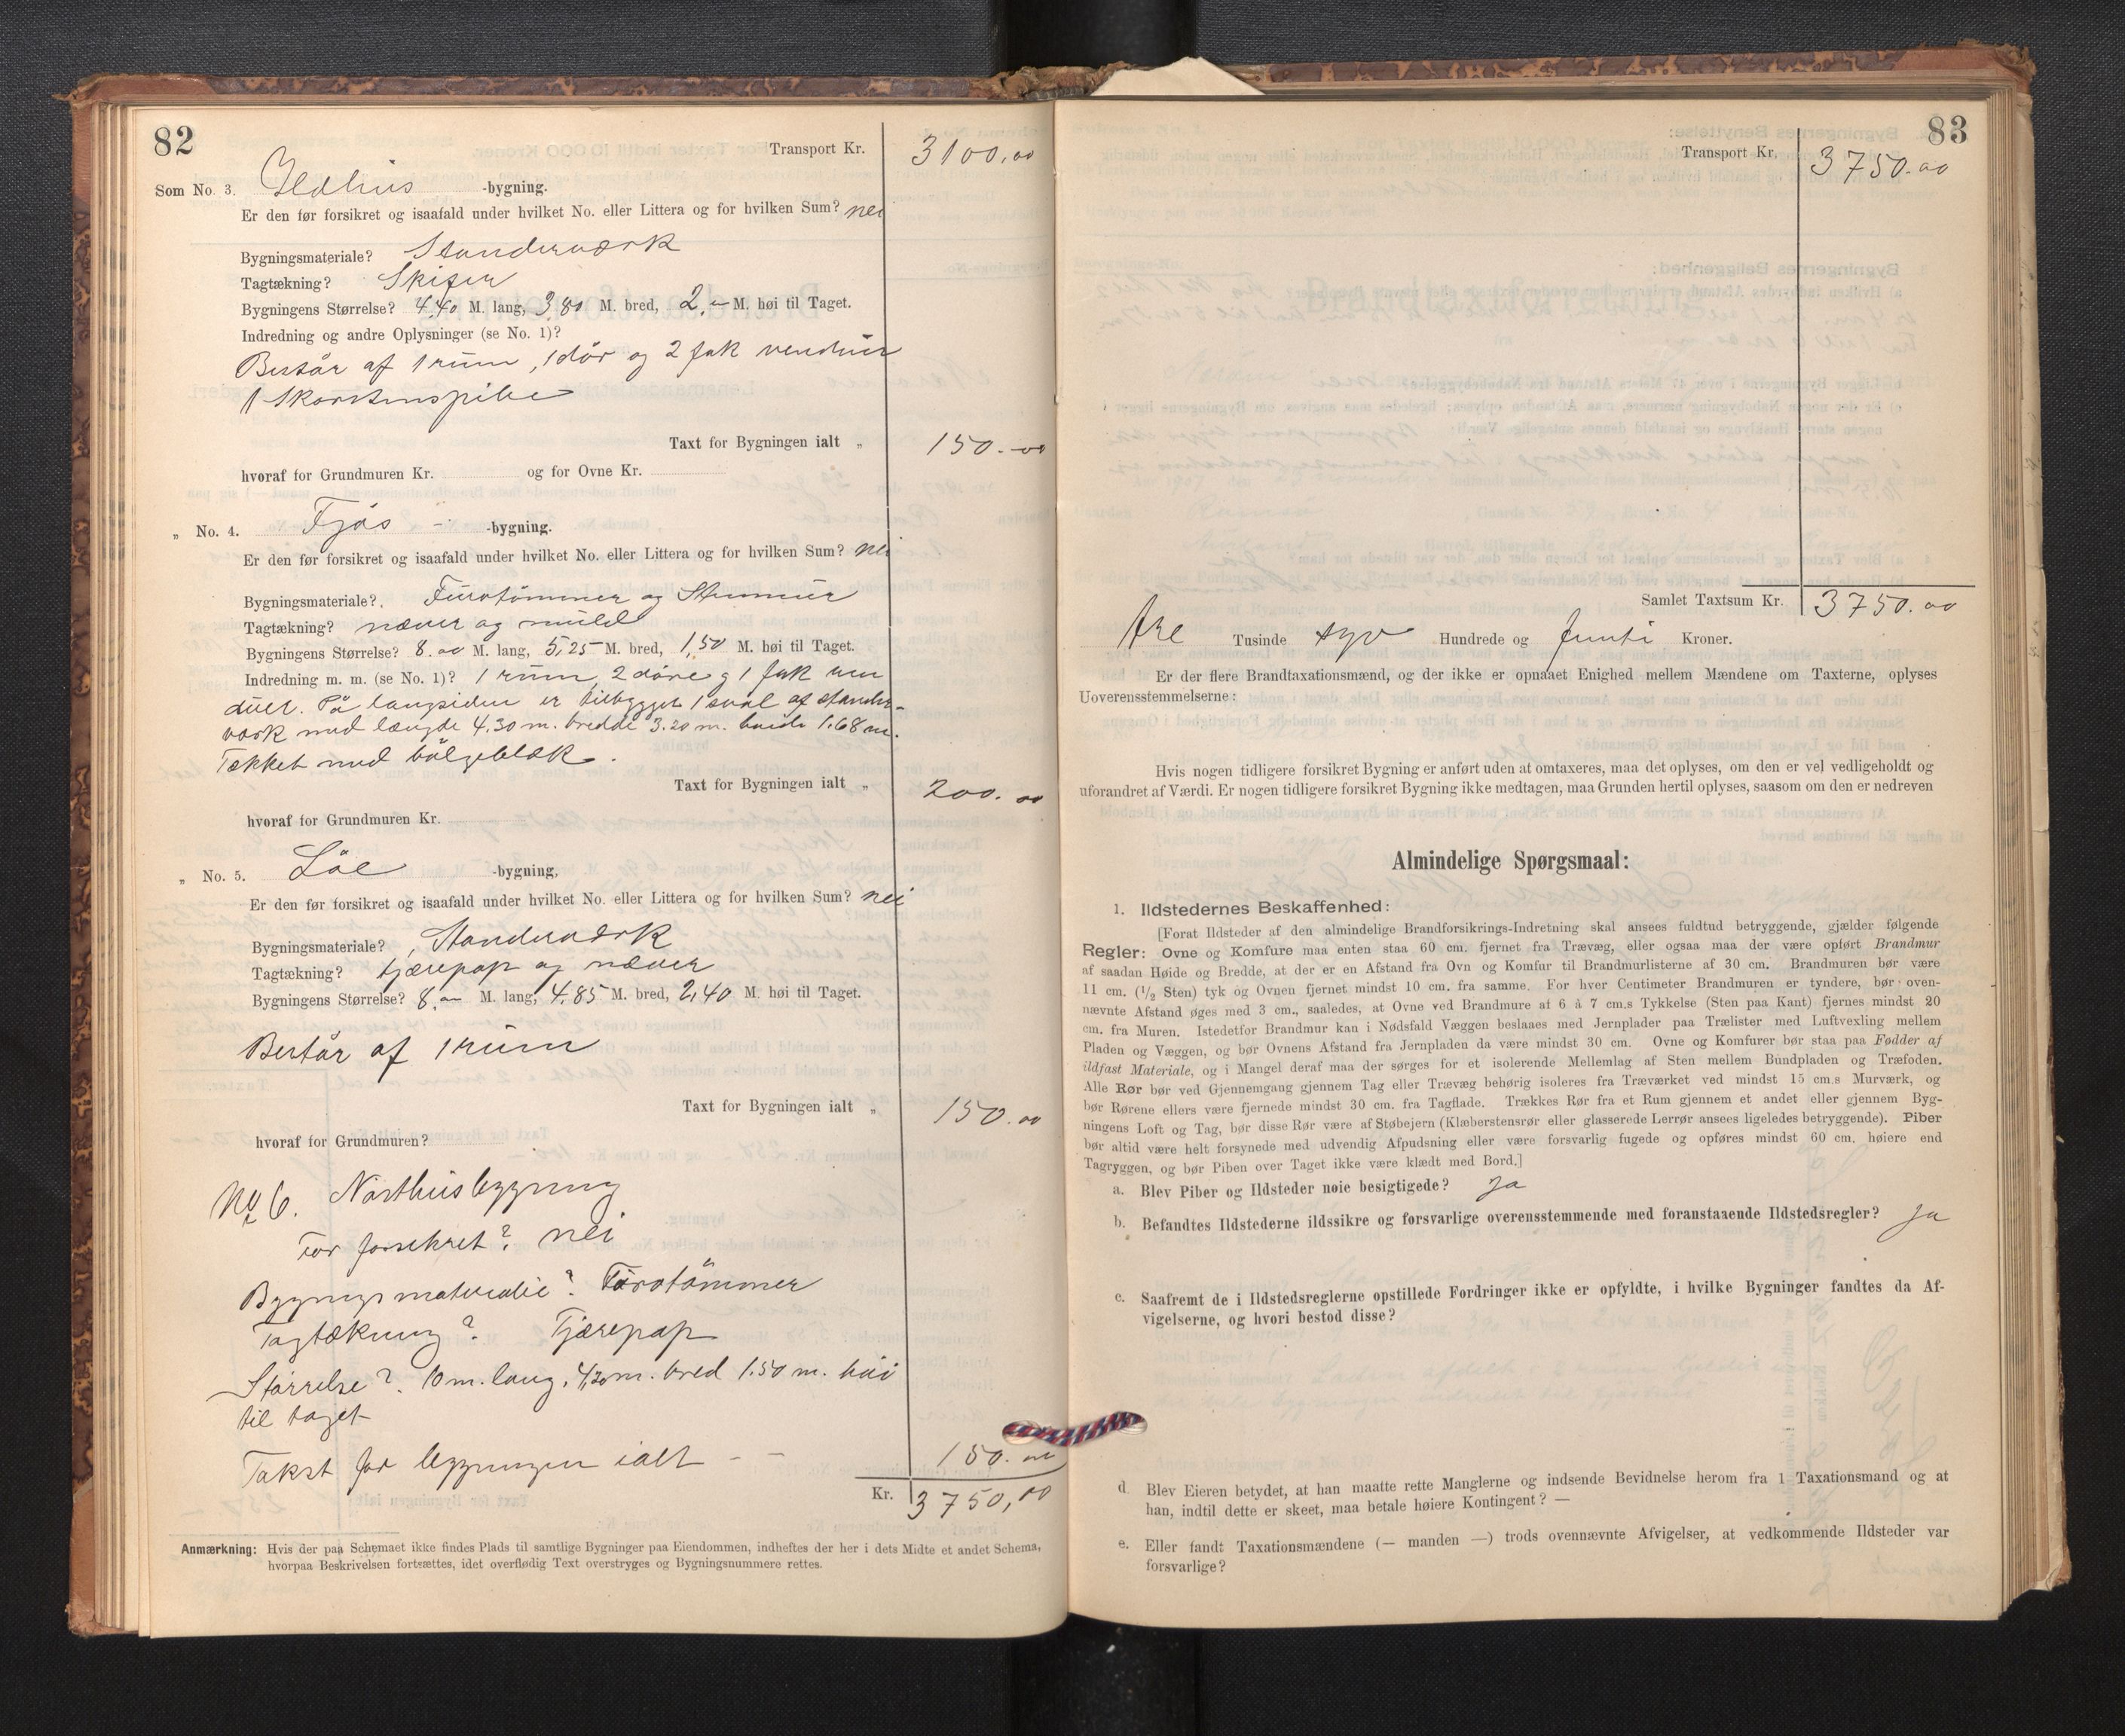 82
Transport Kr. 3100,00
Som No. 3. Ildhus -bygning.
Er den før forsikret og isaafald under hvilket No. eller Littera og for hvilken Sum? nei
Bygningsmateriale? Standerværk
Tagtækning? Skifer
Bygningens Størrelse? 4,40 M. lang, 3,80 M. bred, 2,00 M. høi til Taget.
Indredning og andre Oplysninger (se No. 1)?
Består af 1 rum, 1 dör og 2 fak venduer
1 Skorstenspibe
Taxt for Bygningen ialt „ 150.00
hvoraf for Grundmuren Kr. og for Ovne Kr.
„ No. 4. Fjös - -bygning.
Er den før forsikret og isaafald under hvilket No. eller Littera og for hvilken Sum? nei
Bygningsmateriale? Furotömmer og Stenmur
Tagtækning? næver og muld
Bygningens Størrelse? 8.00 M. lang, 5,25 M. bred, 1,50 M. høi til Taget.
Indredning m. m. (se No. 1)? 1 rum, 2 döre og 1 fak ven
duer. På langsiden er tilbygget 1 sval af stander-
værk med længde 4.30 m. bredde 3.20 m. höide 1.68 m.
Tækket med bölgeblæk.
Taxt for Bygningen ialt „ 200.00
hvoraf for Grundmuren Kr.
„ No. 5. Löe -bygning,
Er den før forsikret og isaafald under hvilket No. eller Littera og for hvilken Sum? nei
Bygningsmateriale? Standerværk
Tagtækning? tjærepap og næver
Bygningens Størrelse? 8.00 M. lang, 4,85 M. bred, 2,40 M. høi til Taget.
Består af 1 rum
Taxt for Bygningen ialt „ 150.00
hvoraf for Grundmuren?
No 6. Nösthusbygning
Før forsikret? nei
Bygningsmateriale? Furotömmer
Tagtækning? Tjærepap
Størrelse? 10 m. lang, 4,20 m. bred 1.50 m. höi
til taget
Takst for bygningen ialt - - 150.00
Kr. 3750,00
Anmærkning: Hvis der paa Schemaet ikke findes Plads til samtlige Bygninger paa Eiendommen, indheftes der her i dets Midte et andet Schema,
hvorpaa Beskrivelsen fortsættes, idet overflødig Text overstryges og Bygningsnummere rettes.
83
Transport Kr. 3750.00
Samlet Taxtsum Kr. 3750.00
Tre Tusinde syv Hundrede og femti Kroner.
Er der flere Brandtaxationsmænd, og der ikke er opnaaet Enighed mellem Mændene om Taxterne, oplyses
Uoverensstemmelserne:
Hvis nogen tidligere forsikret Bygning er anført uden at omtaxeres, maa det oplyses, om den er vel vedligeholdt og
uforandret af Værdi. Er nogen tidligere forsikret Bygning ikke medtagen, maa Grunden hertil oplyses, saasom om den er nedreven
Almindelige Spørgsmaal:
1. Ildstedernes Beskaffenhed:
[Forat Ildsteder af den almindelige Brandforsikrings-Indretning skal ansees fuldtud betryggende, gjælder følgende
Regler: Ovne og Komfure maa enten staa 60 cm. fjernet fra Trævæg, eller ogsaa maa der være opført Brandmur
af saadan Høide og Bredde, at der er en Afstand fra Ovn og Komfur til Brandmurlisterne af 30 cm. Brandmuren bør være
11 cm. (1/2 Sten) tyk og Ovnen fjernet mindst 10 cm. fra samme. For hver Centimeter Brandmuren er tyndere, bør oven-
nævnte Afstand øges med 3 cm., saaledes, at Ovne ved Brandmure af 6 à 7 cm.s Tykkelse (Sten paa Kant) fjernes mindst 20
cm. fra Muren. Istedetfor Brandmur kan i Nødsfald Væggen beslaaes med Jernplader paa Trælister med Luftvexling mellem
Pladen og Væggen, og bør Ovnens Afstand fra Jernpladen da være mindst 30 cm. Ovne og Komfurer bør staa paa Fødder af
ildfast Materiale, og i Mangel deraf maa der sørges for et isolerende Mellemlag af Sten mellem Bundpladen og Træfoden.
Alle Rør bør ved Gjennemgang gjennem Tag eller Trævæg behørig isoleres fra Træværket ved mindst 15 cm.s Murværk, og
bør Rørene ellers være fjernede mindst 30 cm. fra Tagflade. Trækkes Rør fra et Rum gjennem et andet eller gjennem Byg-
ningens Loft og Tag, bør disse Rør være af Støbejern (Klæberstensrør eller glasserede Lerrør ansees ligeledes betryggende). Piber
bør altid være helt forsynede med udvendig Afpudsning eller være forsvarlig fugede og opføres mindst 60 cm. høiere end
Tagryggen, og bør Piben over Taget ikke være klædt med Bord.]
a. Blev Piber og Ildsteder nøie besigtigede? ja
b. Befandtes Ildstederne ildssikre og forsvarlige overensstemmende med foranstaaende Ildstedsregler? ja
c. Saafremt de i Ildstedsreglerne opstillede Fordringer ikke er opfyldte, i hvilke Bygninger fandtes da Af-
vigelserne, og hvori bestod disse?
d. Blev Eieren betydet, at han maatte rette Manglerne og indsende Bevidnelse herom fra 1 Taxationsmand og at
han, indtil dette er skeet, maa betale høiere Kontingent? —
e. Eller fandt Taxationsmændene (— manden —) trods ovennævnte Afvigelser, at vedkommende Ildsteder var
forsvarlige?